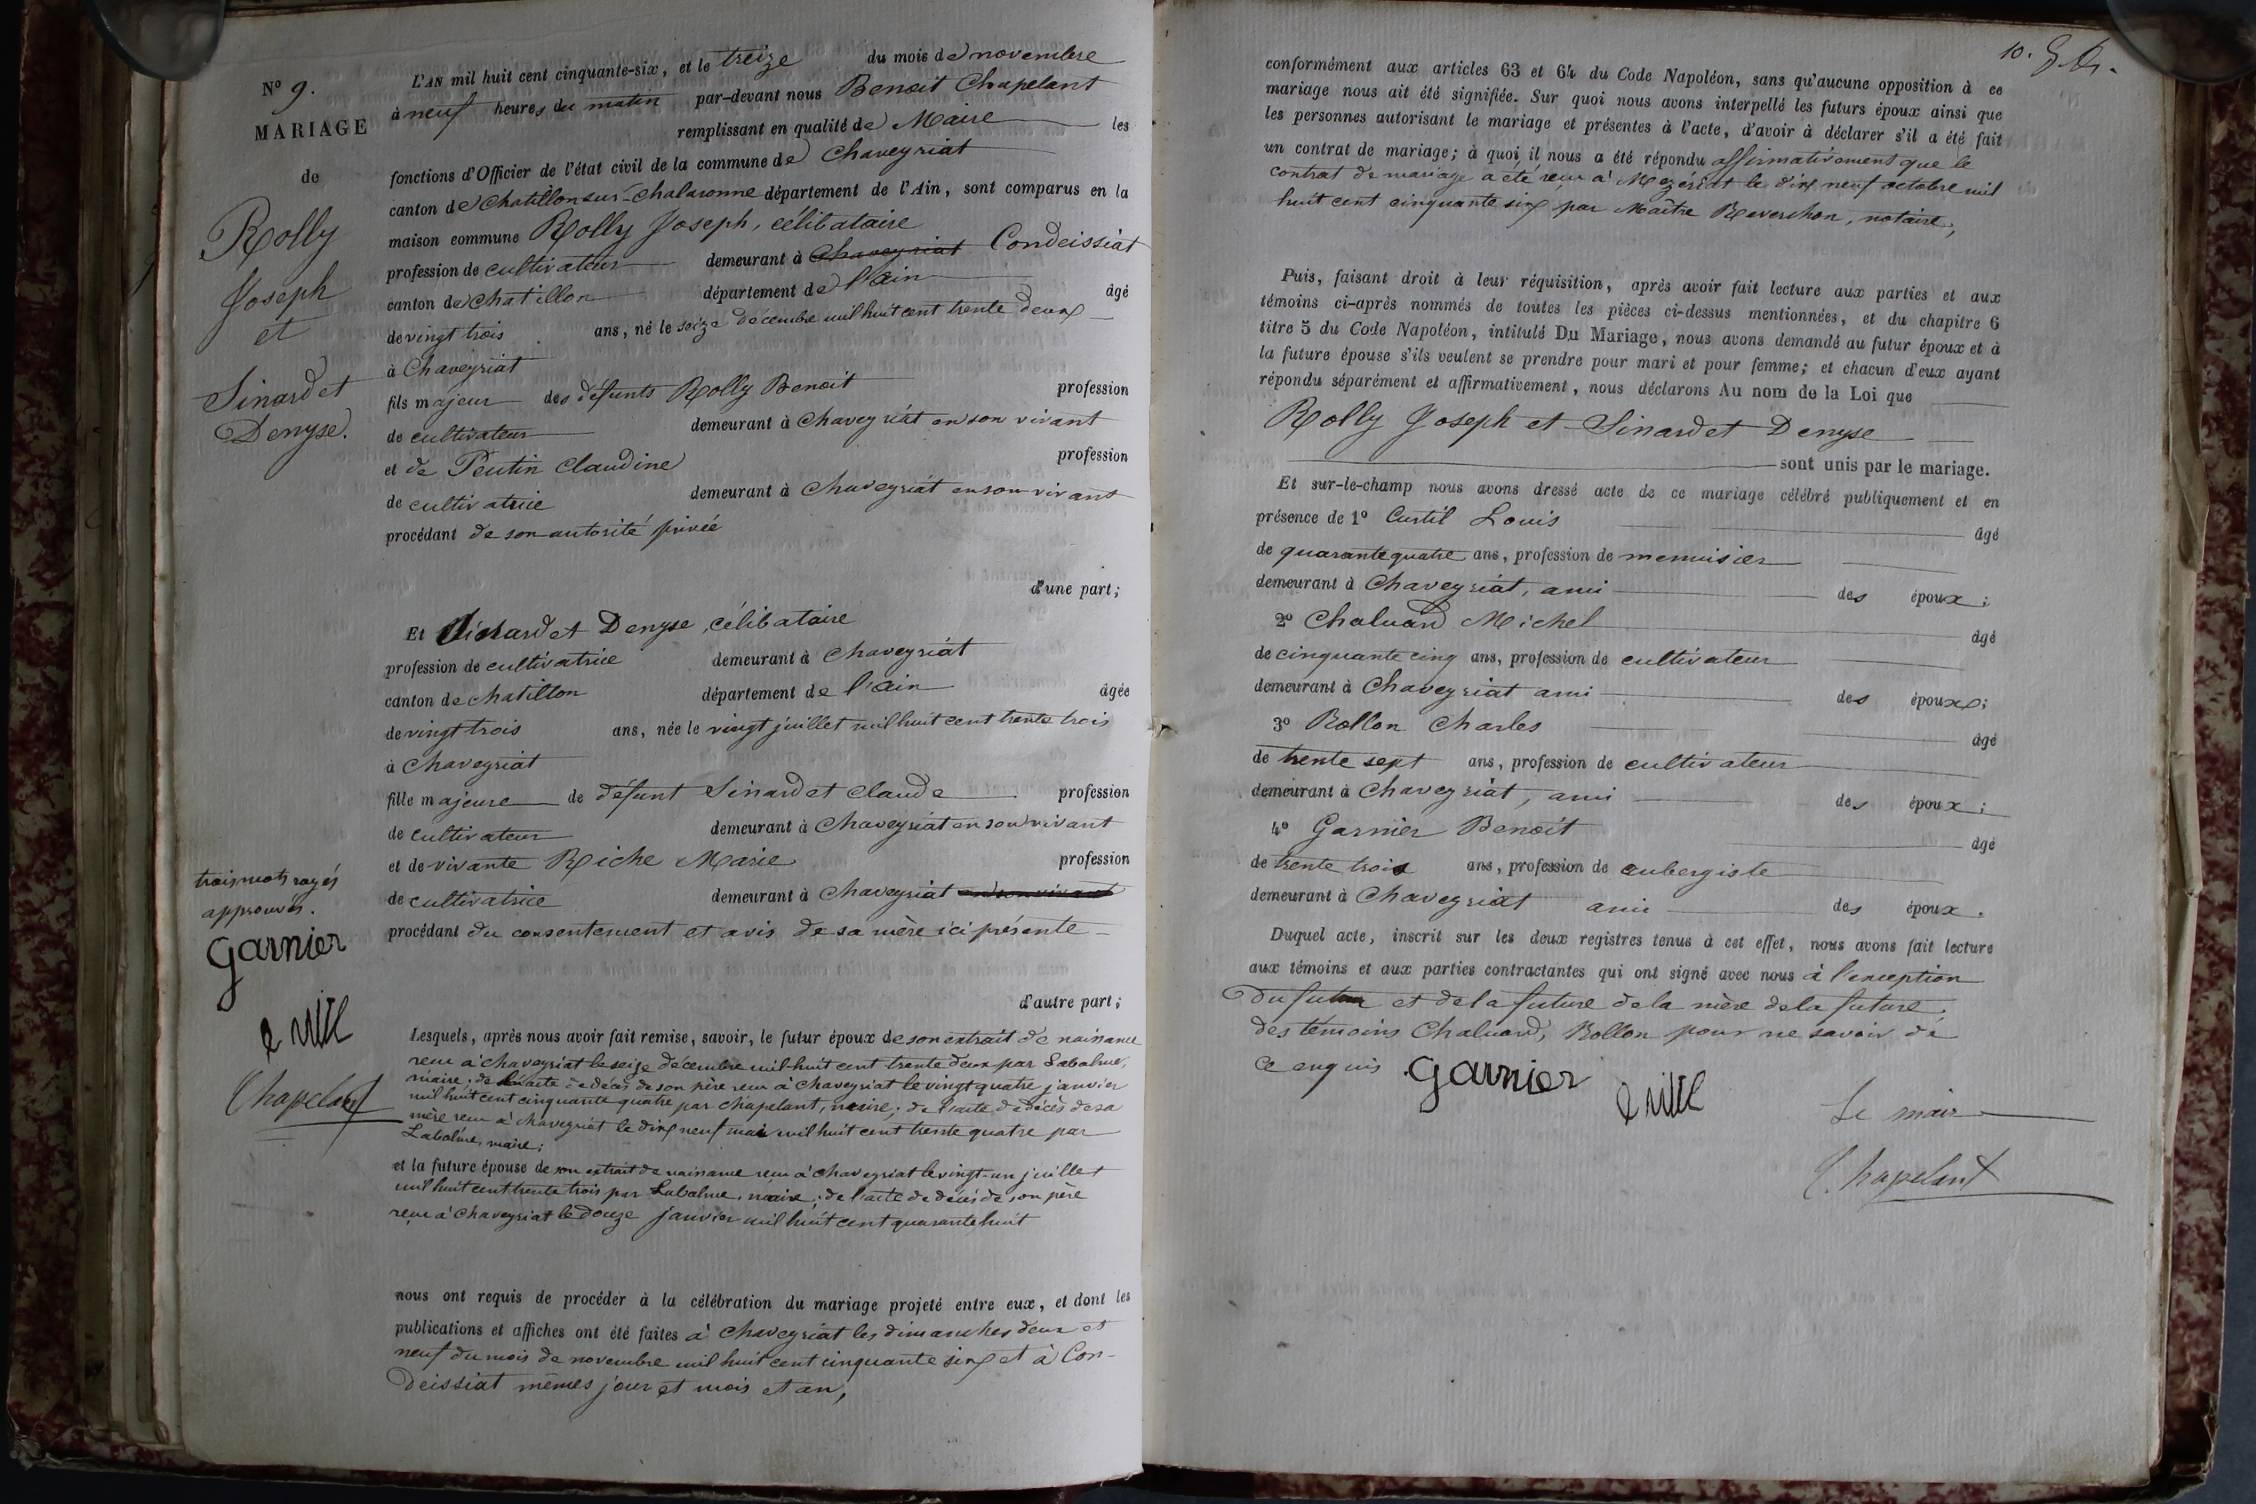 N° 9.
MARIAGE
de
Rolly
Joseph
et
Sinardet
Denyse.
L'AN mil huit cent cinquante-six, et le treize du mois de novembre
à neuf heures du matin par-devant nous Benoit Chapelant
remplissant en qualité de Maire les
fonctions d'Officier de l'état civil de la commune de Chaveyriat
canton de Chatillon sur-Chalaronne département de l'Ain, sont comparus en la
maison commune Rolly Joseph, célibataire
profession de cultivateur demeurant à Chaveyriat Condeissiat
canton de Chatillon département de l'ain âgé
de vingt trois ans, né le seize décembre mil huit cent trente deux
à Chaveyriat
fils majeur des défunts Rolly Benoit profession
de cultivateur demeurant à Chaveyriat en son vivant
et de Peutin Claudine profession
de cultivatrice demeurant à Chaveyriat en son vivant
procédant de son autorité privée
d'une part;
Et Sinardet Denyse, célibataire
profession de cultivatrice demeurant à Chaveyriat
canton de chatillon département de l'ain âgée
de vingt trois ans, née le vingt juillet mil huit cent trente trois
à Chaveyriat
fille majeure de défunt Sinardet Claude profession
de cultivateur demeurant à Chaveyriat en son vivant
et de vivante Riche Marie profession
de cultivatrice demeurant à Chaveyriat en son vivant
procédant du consentement et avis de sa mère ici présente
d'autre part;
trois mots rayés
approuvés.
Garnier
Chapelant
Lesquels, après nous avoir fait remise, savoir, le futur époux de son extrait de naissance
reçu à Chaveyriat le seize décembre mil huit cent trente deux par Labalme,
maire; de l'acte de décès de son père reçu à Chaveyriat le vingt quatre janvier
mil huit cent cinquante quatre par Chapelant, maire; de l'acte de décès de sa
mère reçu à Chaveyriat le dix neuf mai mil huit cent trente quatre par
Labalme, maire;
et la future épouse de son extrait de naissance reçu à Chaveyriat le vingt-un juillet
mil huit cent trente trois par Labalme, maire; de l'acte de décès de son père
reçu à Chaveyriat le douze janvier mil huit cent quarante huit
nous ont requis de procéder à la célébration du mariage projeté entre eux, et dont les
publications et affiches ont été faites à Chaveyriat les dimanches deux et
neuf du mois de novembre mil huit cent cinquante six et à Con-
deissiat mêmes jour et mois et an,
10.
conformément aux articles 63 et 64 du Code Napoléon, sans qu'aucune opposition à ce
mariage nous ait été signifiée. Sur quoi nous avons interpellé les futurs époux ainsi que
les personnes autorisant le mariage et présentes à l'acte, d'avoir à déclarer s'il a été fait
un contrat de mariage; à quoi il nous a été répondu affirmativement que le
contrat de mariage a été reçu à Mézériat le dix neuf octobre mil
huit cent cinquante six par Maître Reverchon, notaire,
Puis, faisant droit à leur réquisition, après avoir fait lecture aux parties et aux
témoins ci-après nommés de toutes les pièces ci-dessus mentionnées, et du chapitre 6
titre 5 du Code Napoléon, intitulé Du Mariage, nous avons demandé au futur époux et à
la future épouse s'ils veulent se prendre pour mari et pour femme; et chacun d'eux ayant
répondu séparément et affirmativement, nous déclarons Au nom de la Loi que
Rolly Joseph et Sinardet Denyse
sont unis par le mariage.
Et sur-le-champ nous avons dressé acte de ce mariage célébré publiquement et en
présence de 1° Curtil Louis âgé
de quarante quatre ans, profession de menuisier
demeurant à Chaveyriat, ami des époux;
2° Chaluard Michel âgé
de cinquante cinq ans, profession de cultivateur
demeurant à Chaveyriat ami des époux;
3° Rollon Charles âgé
de trente sept ans, profession de cultivateur
demeurant à Chaveyriat, ami des époux;
4° Garnier Benoit âgé
de trente trois ans, profession de aubergiste
demeurant à Chaveyriat ami des époux.
Duquel acte, inscrit sur les deux registres tenus à cet effet, nous avons fait lecture
aux témoins et aux parties contractantes qui ont signé avec nous à l'exception
du futur et de la future de la mère de la future,
des témoins Chaluard, Rollon pour ne savoir de
ce enquis Garnier
Le maire
Chapelant